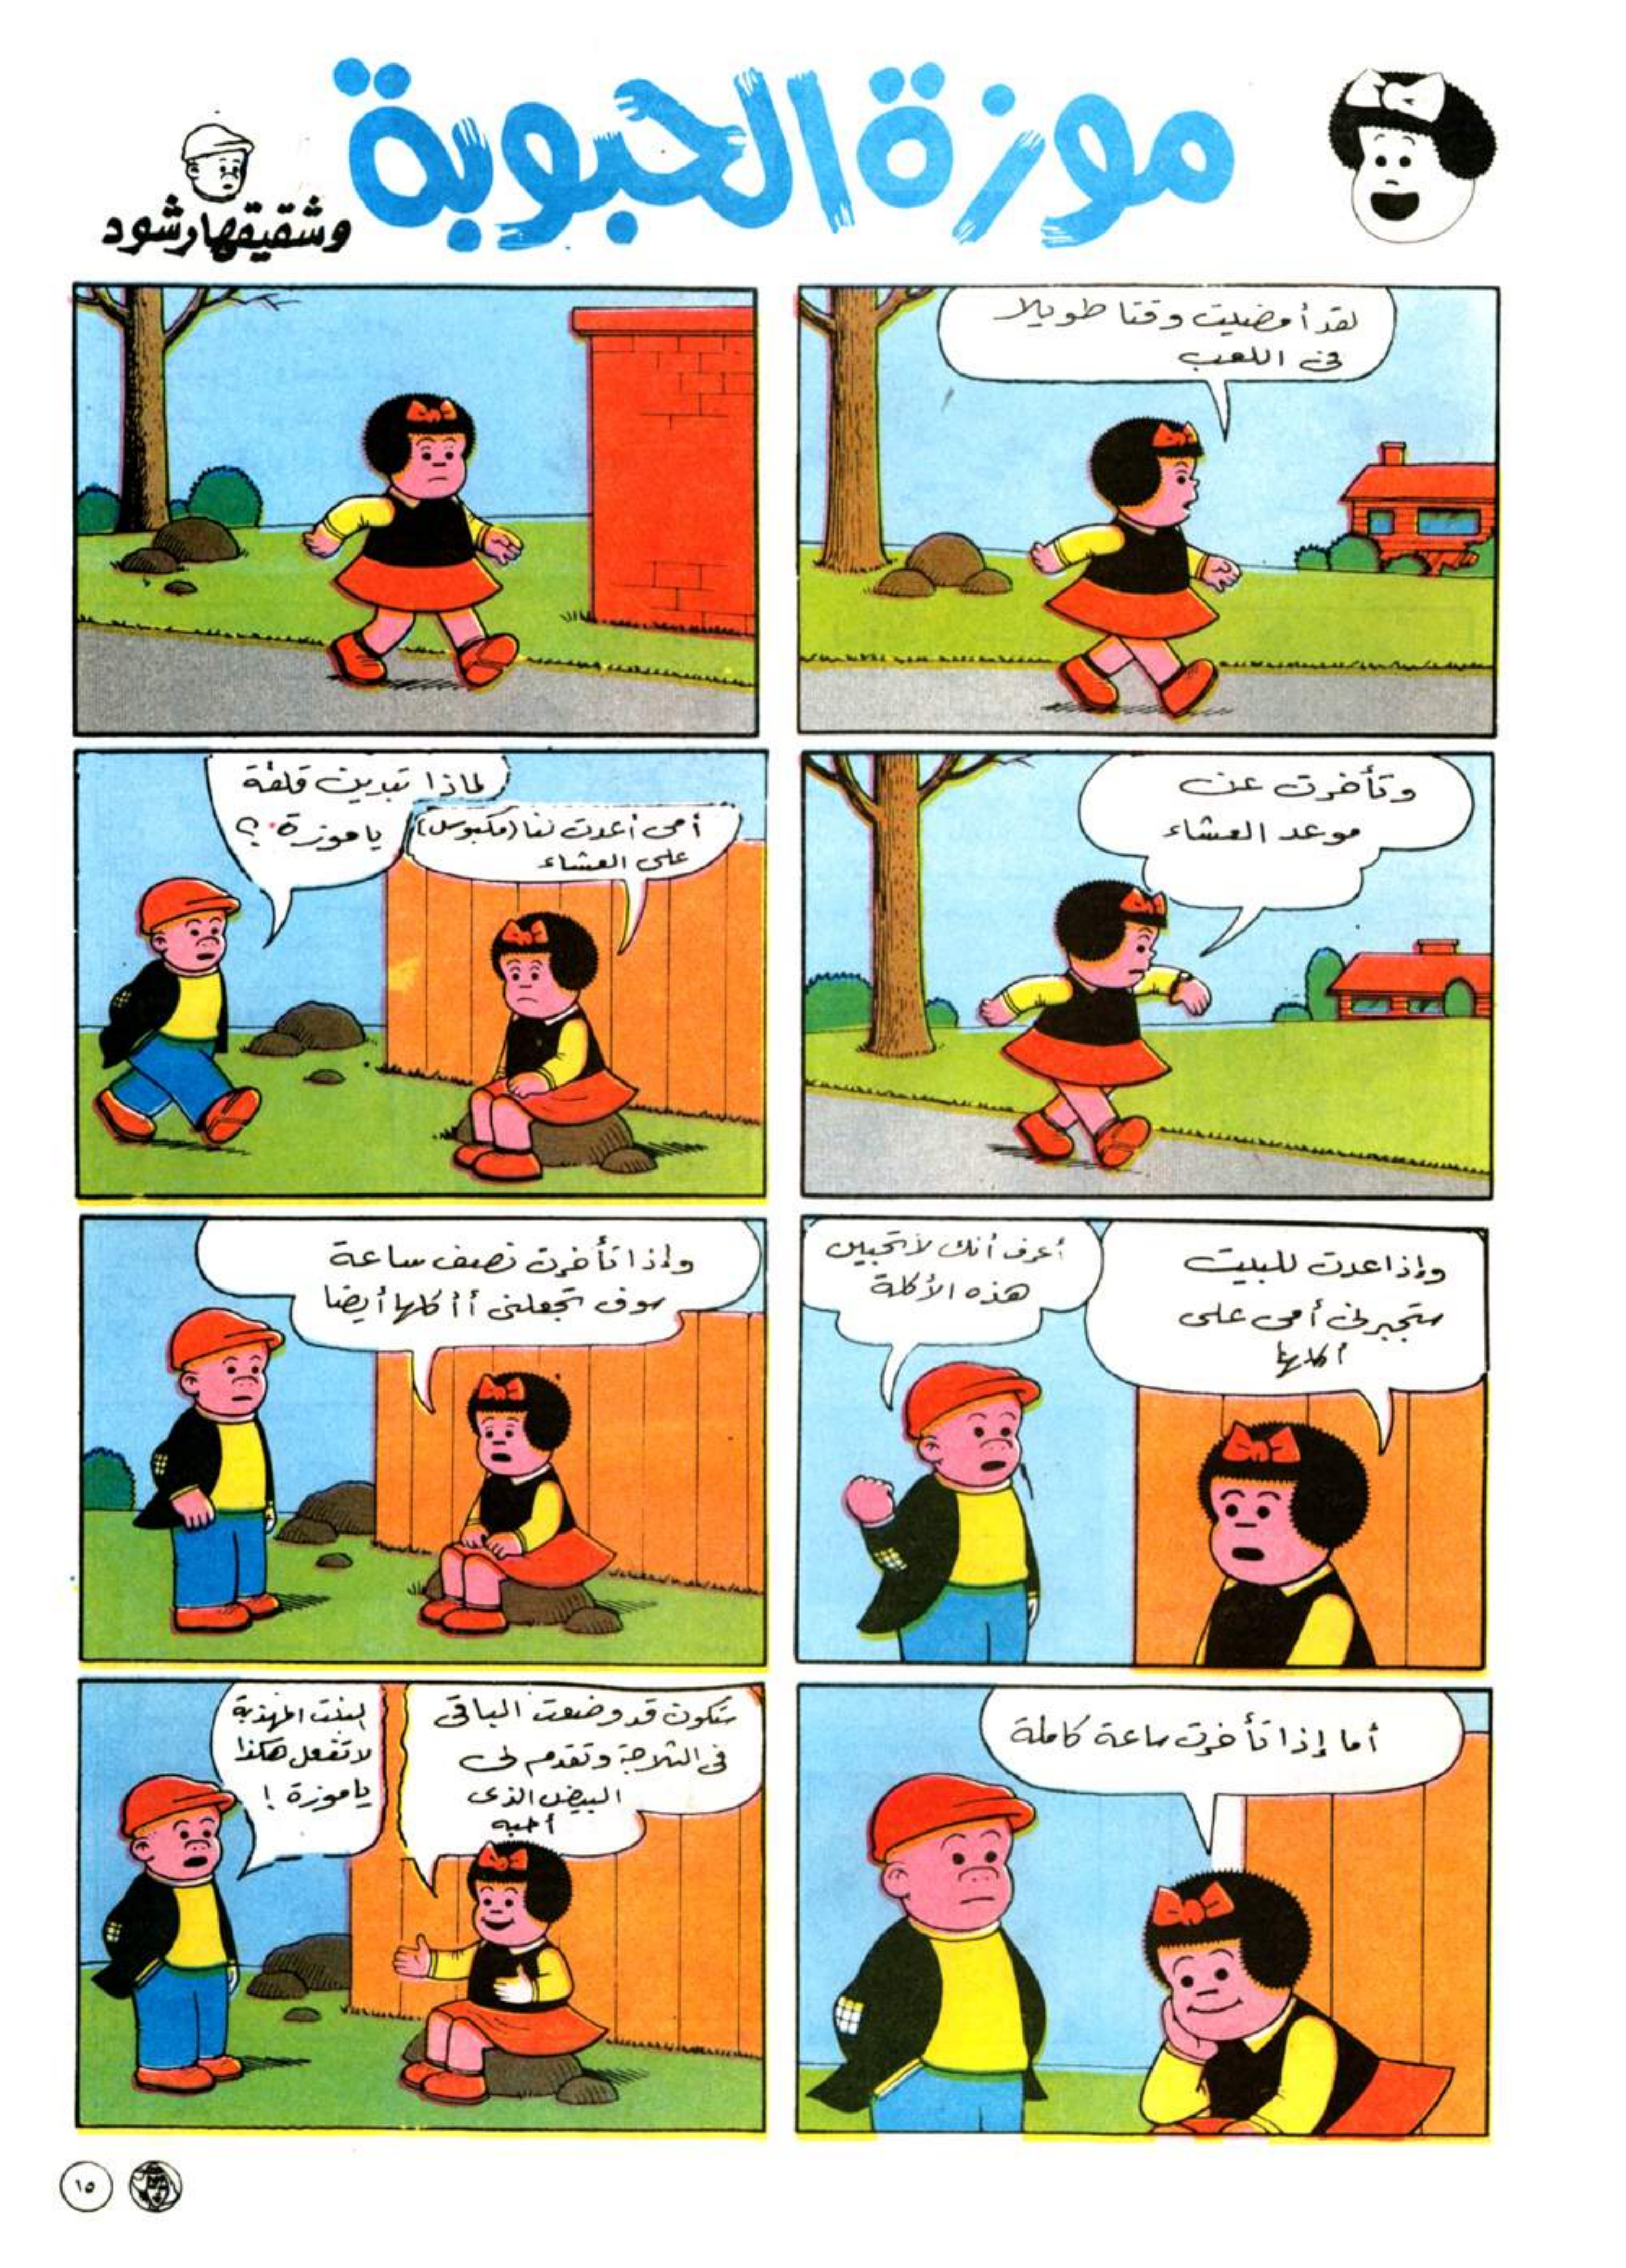 موزة الحبوبة
وشقيقها رشود
لقد أمضيت وقتا طويلا
في اللعب
وتأخرت عن
موعد العشاء
لماذا تبدين قلقة
يا موزة ؟
أمي أعدت لنا (مكبوس)
على العشاء
وإذا عدت للبيت
ستجبرني أمي على
أكلها
أعرف أنك لا تحبين
هذه الأكلة
وإذا تأخرت نصف ساعة
سوف تجعلني أأكلها أيضا
أما إذا تأخرت ساعة كاملة
ستكون قد وضعت الباقي
في الثلاجة وتقدم لي
البيض الذي
أحبه
البنت المهذبة
لا تفعل هكذا
يا موزة !
١٥